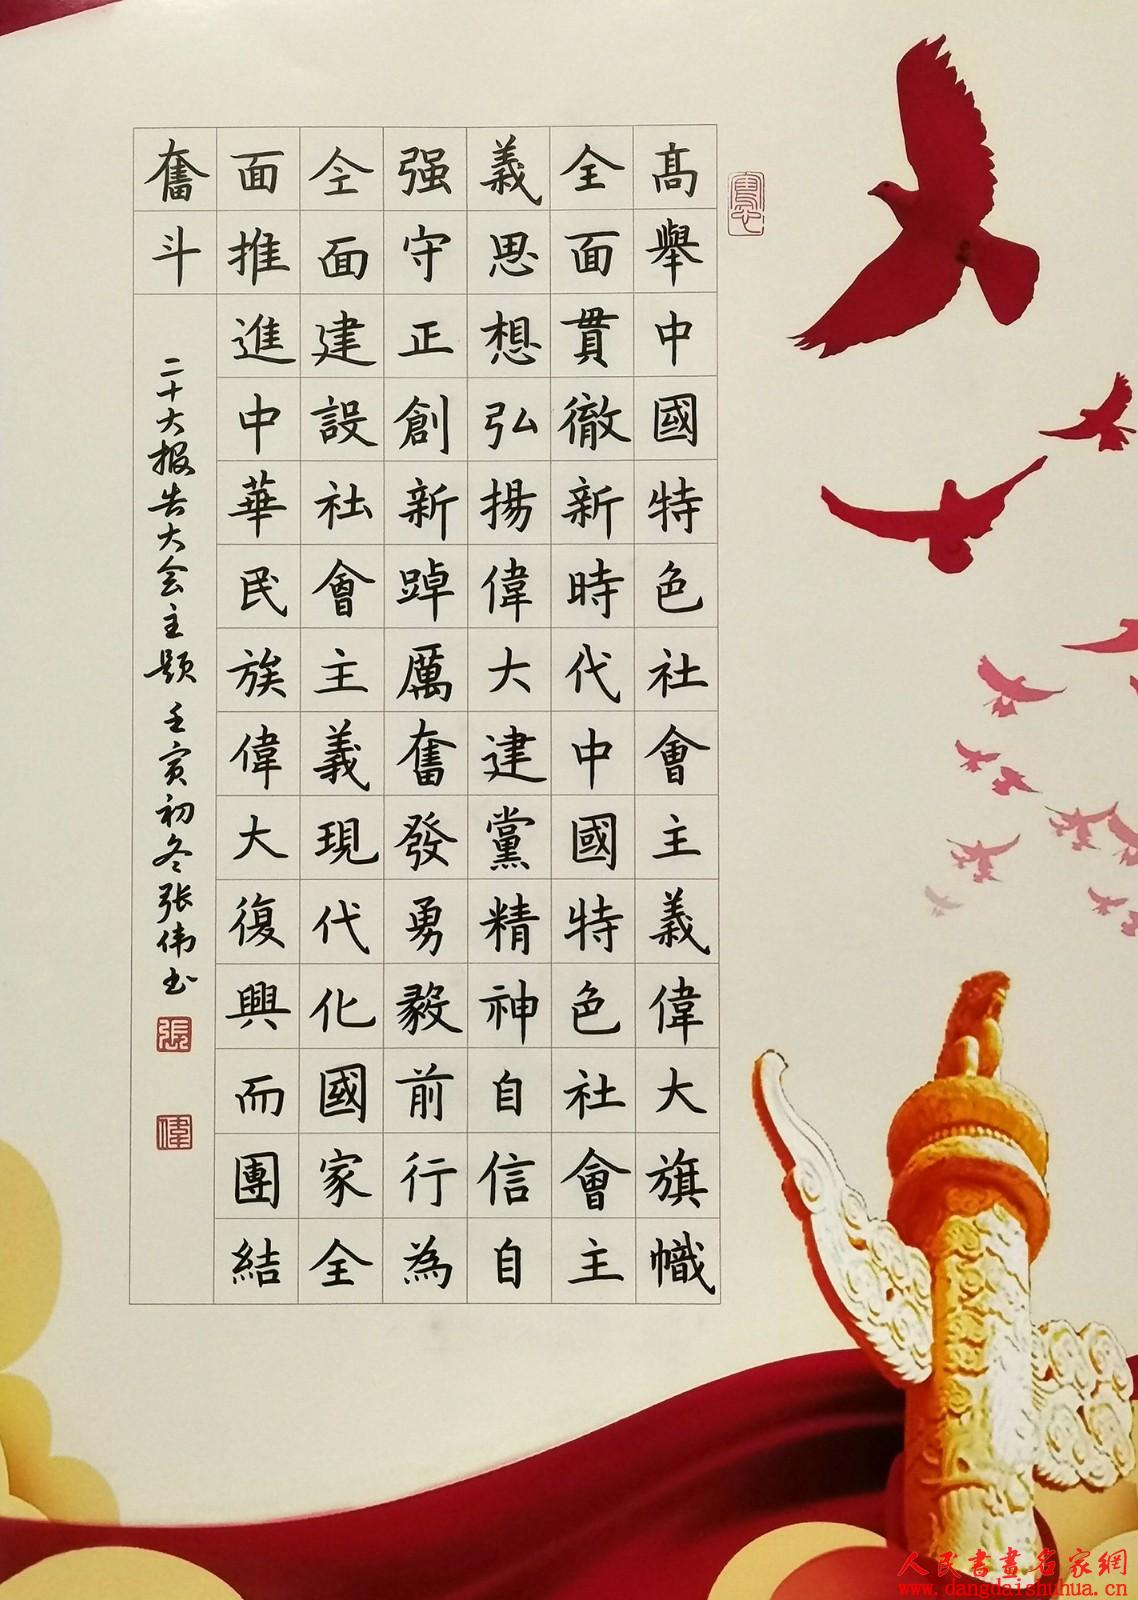 高舉中國特色社會主義偉大旗幟
全面貫徹新時代中國特色社會主
義思想弘揚偉大建黨精神自信自
强守正創新踔厲奮發勇毅前行為
仝面建設社會主義現代化國家全
面推進中華民族偉大復興而團結
奮斗
二十大报告大会主题 壬寅初冬张伟书
張
偉
人民書畫名家網
www.dangdaishuhua.cn